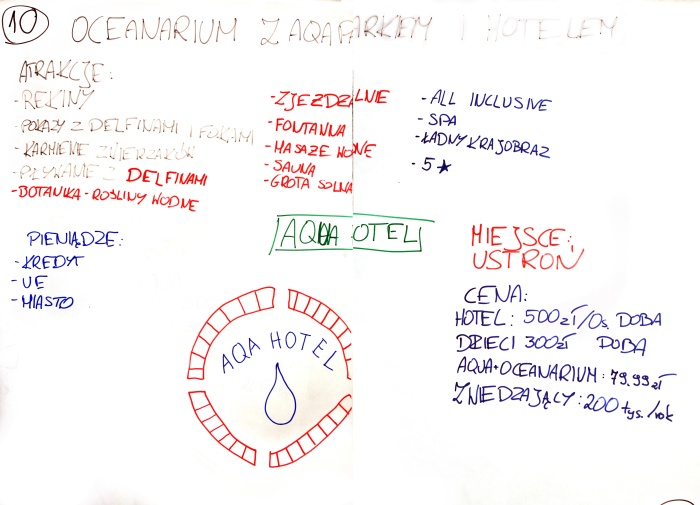 10 OCEANARIUM Z AQAPARKIEM I HOTELEM
ATRAKCJE:
- REKINY
- POKAZY Z DELFINAMI I FOKAMI
- KARMIENIE ZWIERZAKÓW
- PŁYWANIE Z DELFINAMI
- BOTANIKA - ROŚLINY WODNE
- ZJEŻDŻALNIE
- FONTANNA
- MASAŻE WODNE
- SAUNA
- GROTA SOLNA
- ALL INCLUSIVE
- SPA
- ŁADNY KRAJOBRAZ
- 5 ★
AQUA OTEL
PIENIĄDZE:
- KREDYT
- UE
- MIASTO
AQA HOTEL
MIEJSCE:
USTROŃ
CENA:
HOTEL: 500 zł/Os. DOBA
DZIECI 300zł DOBA
AQUA+OCEANARIUM: 79,99 zł
ZWIEDZAJĄCY: 200 tyś./rok